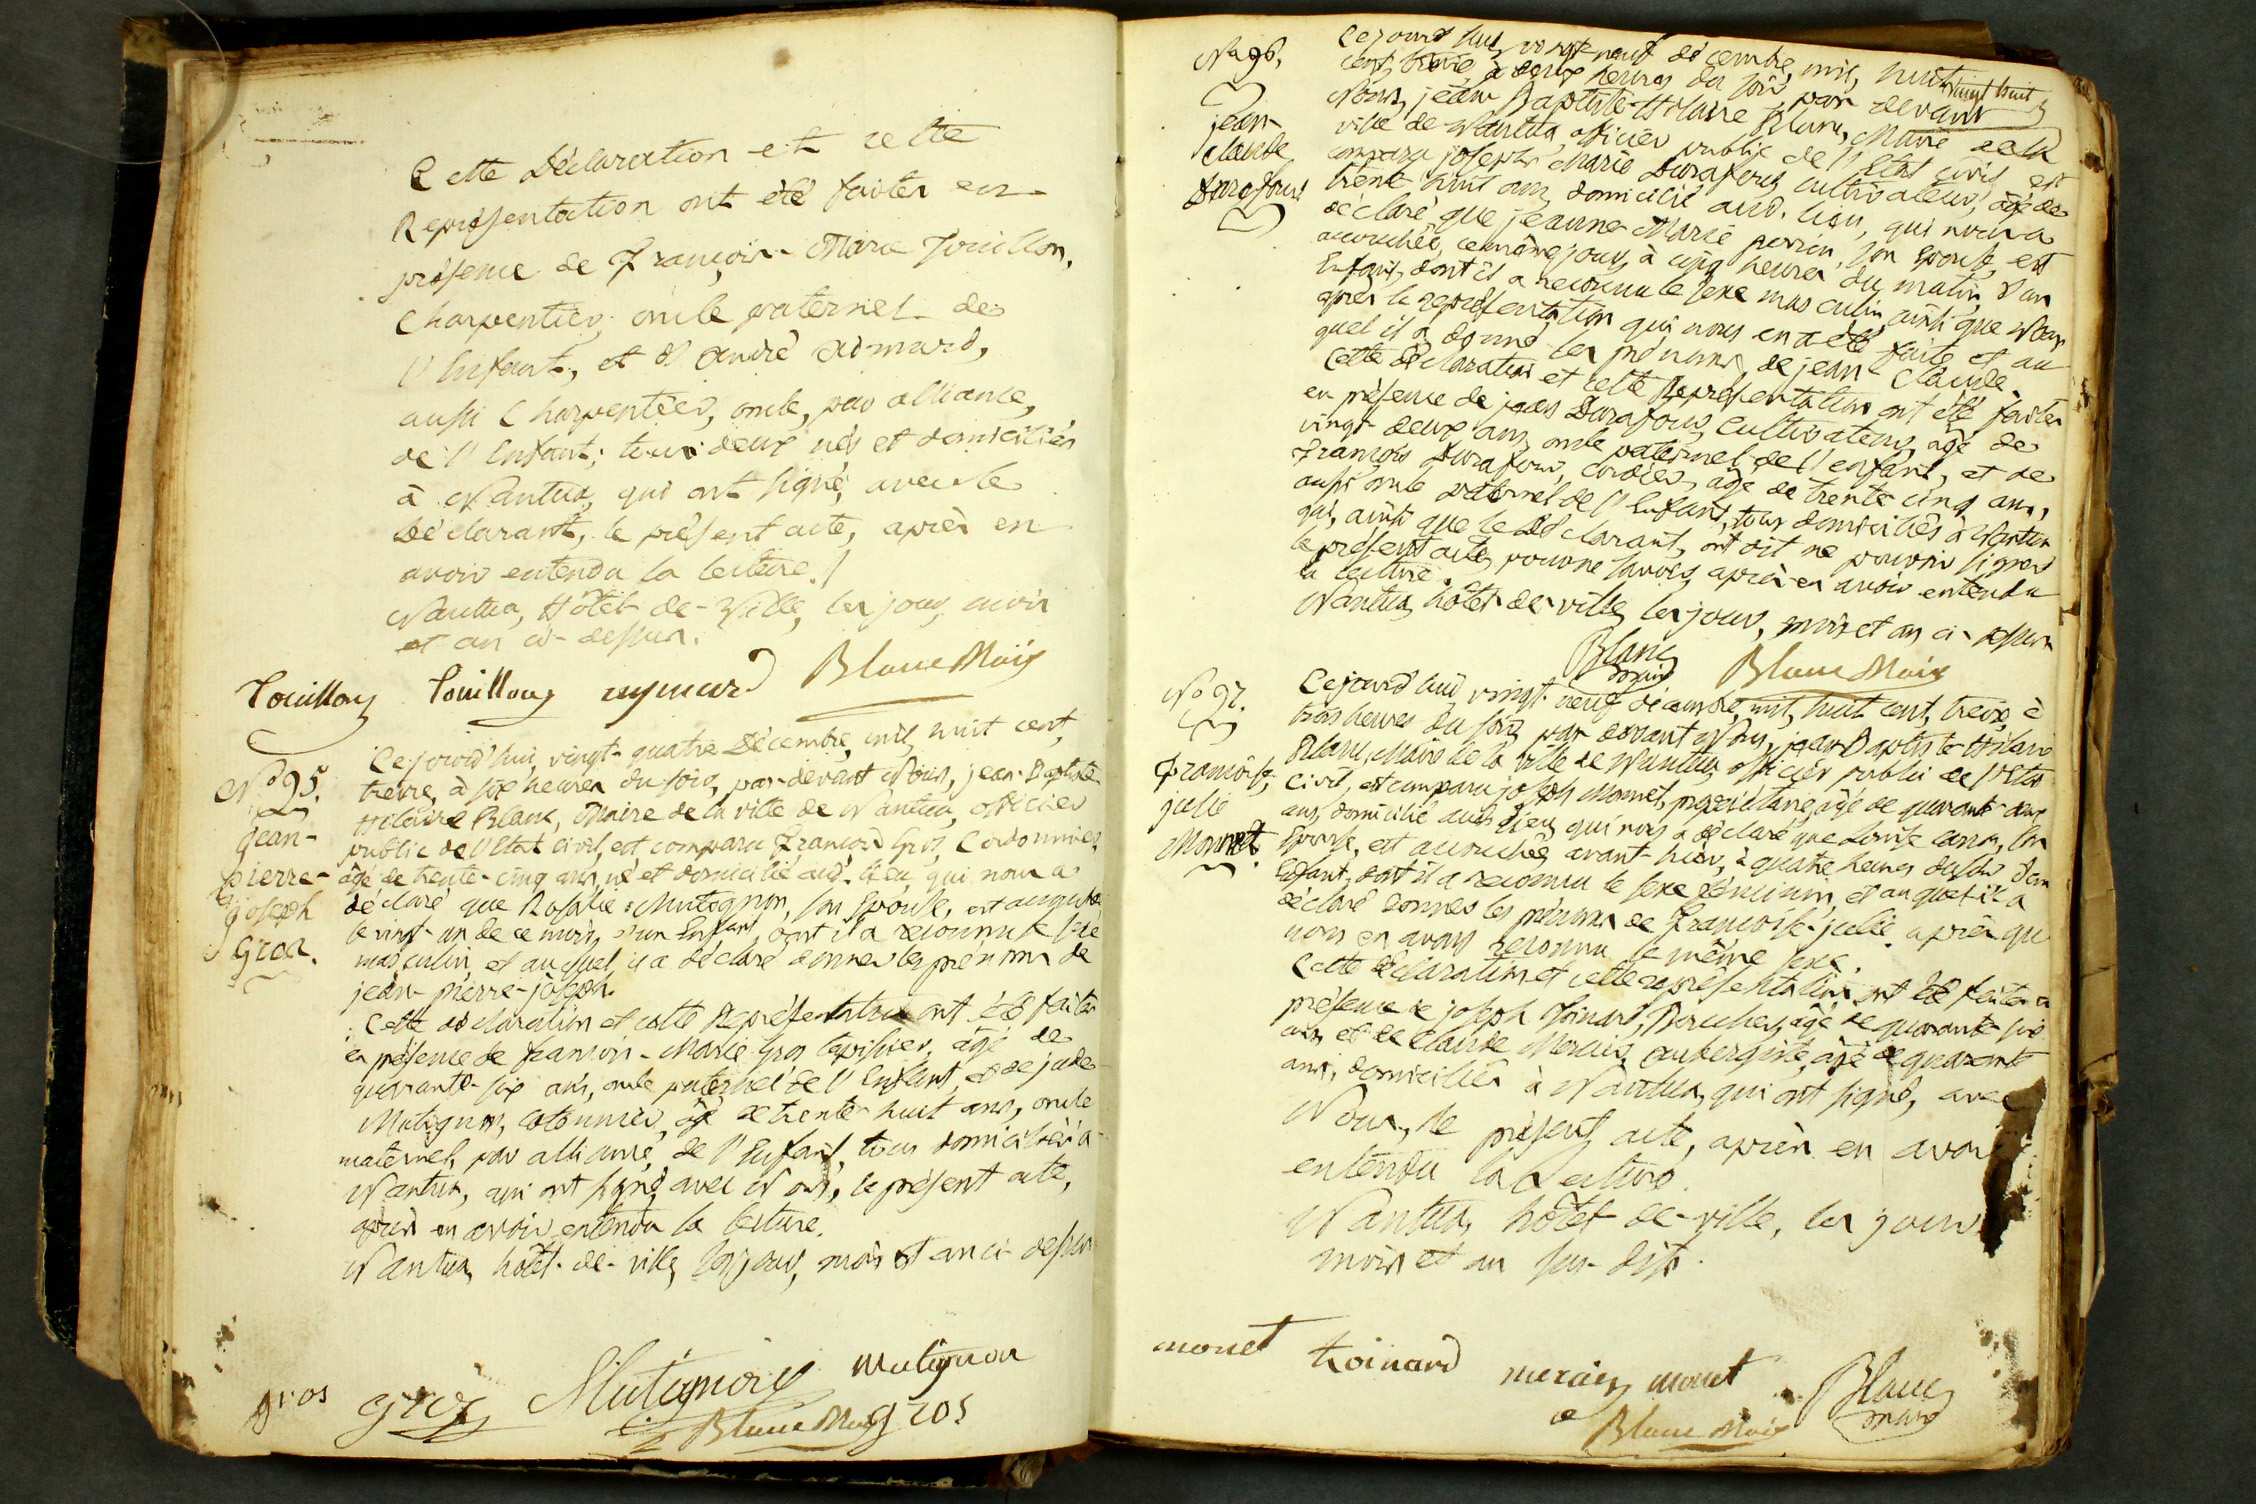 Cette Déclaration et cette
Représentation ont été faites en
présence de François-Marie Touillon,
Charpentier, oncle paternel de
l'Enfant, et d'André aimard,
aussi Charpentier, oncle, par alliance,
de l'Enfant; tous deux nés et domiciliés
à Nantua, qui ont signé, avec le
Déclarant, le présent acte, après en
avoir entendu la lecture./
Nantua, Hôtel-de-Ville, les jour, mois
et an ci-dessus.
Touillon Touillon aymard Blanc Maire
No 95.
Jean-
pierre-
joseph
Gros.
Cejourd'hui vingt-quatre Décembre, mil huit cent,
treize, à six heures du soir, par-devant Nous, jean-Baptiste
hilaire Blanc, Maire de la ville de Nantua, officier
public de l'Etat civil, est comparu François Gros, Cordonnier
âgé de trente-cinq ans, né et domicilié aud. lieu, qui nous a
déclaré que Rosalie Mutignon, son Epouse, est accouchée
le vingt-un de ce mois, d'un Enfant, dont il a reconnu le sexe
masculin, et auquel il a déclaré donner les prénoms de
jean-pierre-joseph.
Cette déclaration et cette Représentation ont été faites
en présence de françois-Marie Gros tapissier, âgé de
quarante-six ans, oncle paternel de l'Enfant, et de jude
Mutignon, cotonnier, âgé de trente-huit ans, oncle
maternel, par alliance, de l'Enfant, tous domiciliés à
Nantua, qui ont signé, avec Nous, le présent acte,
après en avoir entendu la lecture.
Nantua, hôtel-de-ville, les jour, mois et an ci-dessus
gros gros Mutignon mutignon
Blanc Maire gros
No 96.
jean-
claude
Durafour
Cejourd'hui vingt-neuf décembre, mil, huit
vingt huit
cent, treize, à deux heures du soir, par devant
Nous, jean Baptiste-Hilaire Blanc, Maire de la
ville de Nantua, officier public de l'Etat civil, est
comparu joseph Marie Durafour, cultivateur, âgé de
trente huit ans, domicilié aud. lieu, qui nous a
déclaré que jeanne-Marie perrin, son épouse, est
accouchée, ce même jour, à cinq heures du matin, d'un
Enfant, dont il a reconnu le sexe masculin, ainsi que Nous
après la représentation qui nous en a été faite, et au
quel il a donné les prénoms de jean Claude.
Cette déclaration et cette Représentation ont été faites
en présence de Durafour, Cultivateur, âgé de
vingt-deux ans, oncle paternel de l'enfant, et de
François Durafour, cordier, âgé de trente cinq ans,
aussi oncle paternel de l'Enfant, tous domiciliés à Nantua
qui, ainsi que le Déclarant, ont dit ne pouvoir signer
le présent acte, pour ne savoir, après en avoir entendu
la lecture.
Nantua, hôtel-de-ville, les jour, mois et an ci-dessus
Blanc
maire Blanc Maire
No 97.
Françoise
julie
Monnet
Cejourd'hui, vingt-neuf décembre, mil, huit cent, treize, à
trois heures du soir, par devant Nous, jean Baptiste hilaire
Blanc, Maire de la ville de Nantua, officier public de l'Etat
Civil, est comparu joseph Monnet, propriétaire, âgé de quarante-deux
ans, domicilié aud. lieu, qui nous a déclaré que Louise, son
Epouse, est accouchée, avant-hier, à quatre heures du soir, d'un
Enfant, dont il a reconnu le sexe féminin, et auquel il a
déclaré donner les prénoms de Françoise-julie, après que
nous en avons reconnu le même sexe.
Cette déclaration et cette représentation ont été faites en
présence de joseph Thoinard, Perruquier, âgé de quarante-six
ans, et de Claude Merain, aubergiste, âgé de quarante
ans, domiciliés à Nantua, qui ont signé, avec
Nous, le présent acte, après en avoir
entendu la Lecture.
Nantua, hôtel-de-ville, les jour
mois et an sus-dits.
monet thoinard merain monet Blanc
maire
Blanc Maire